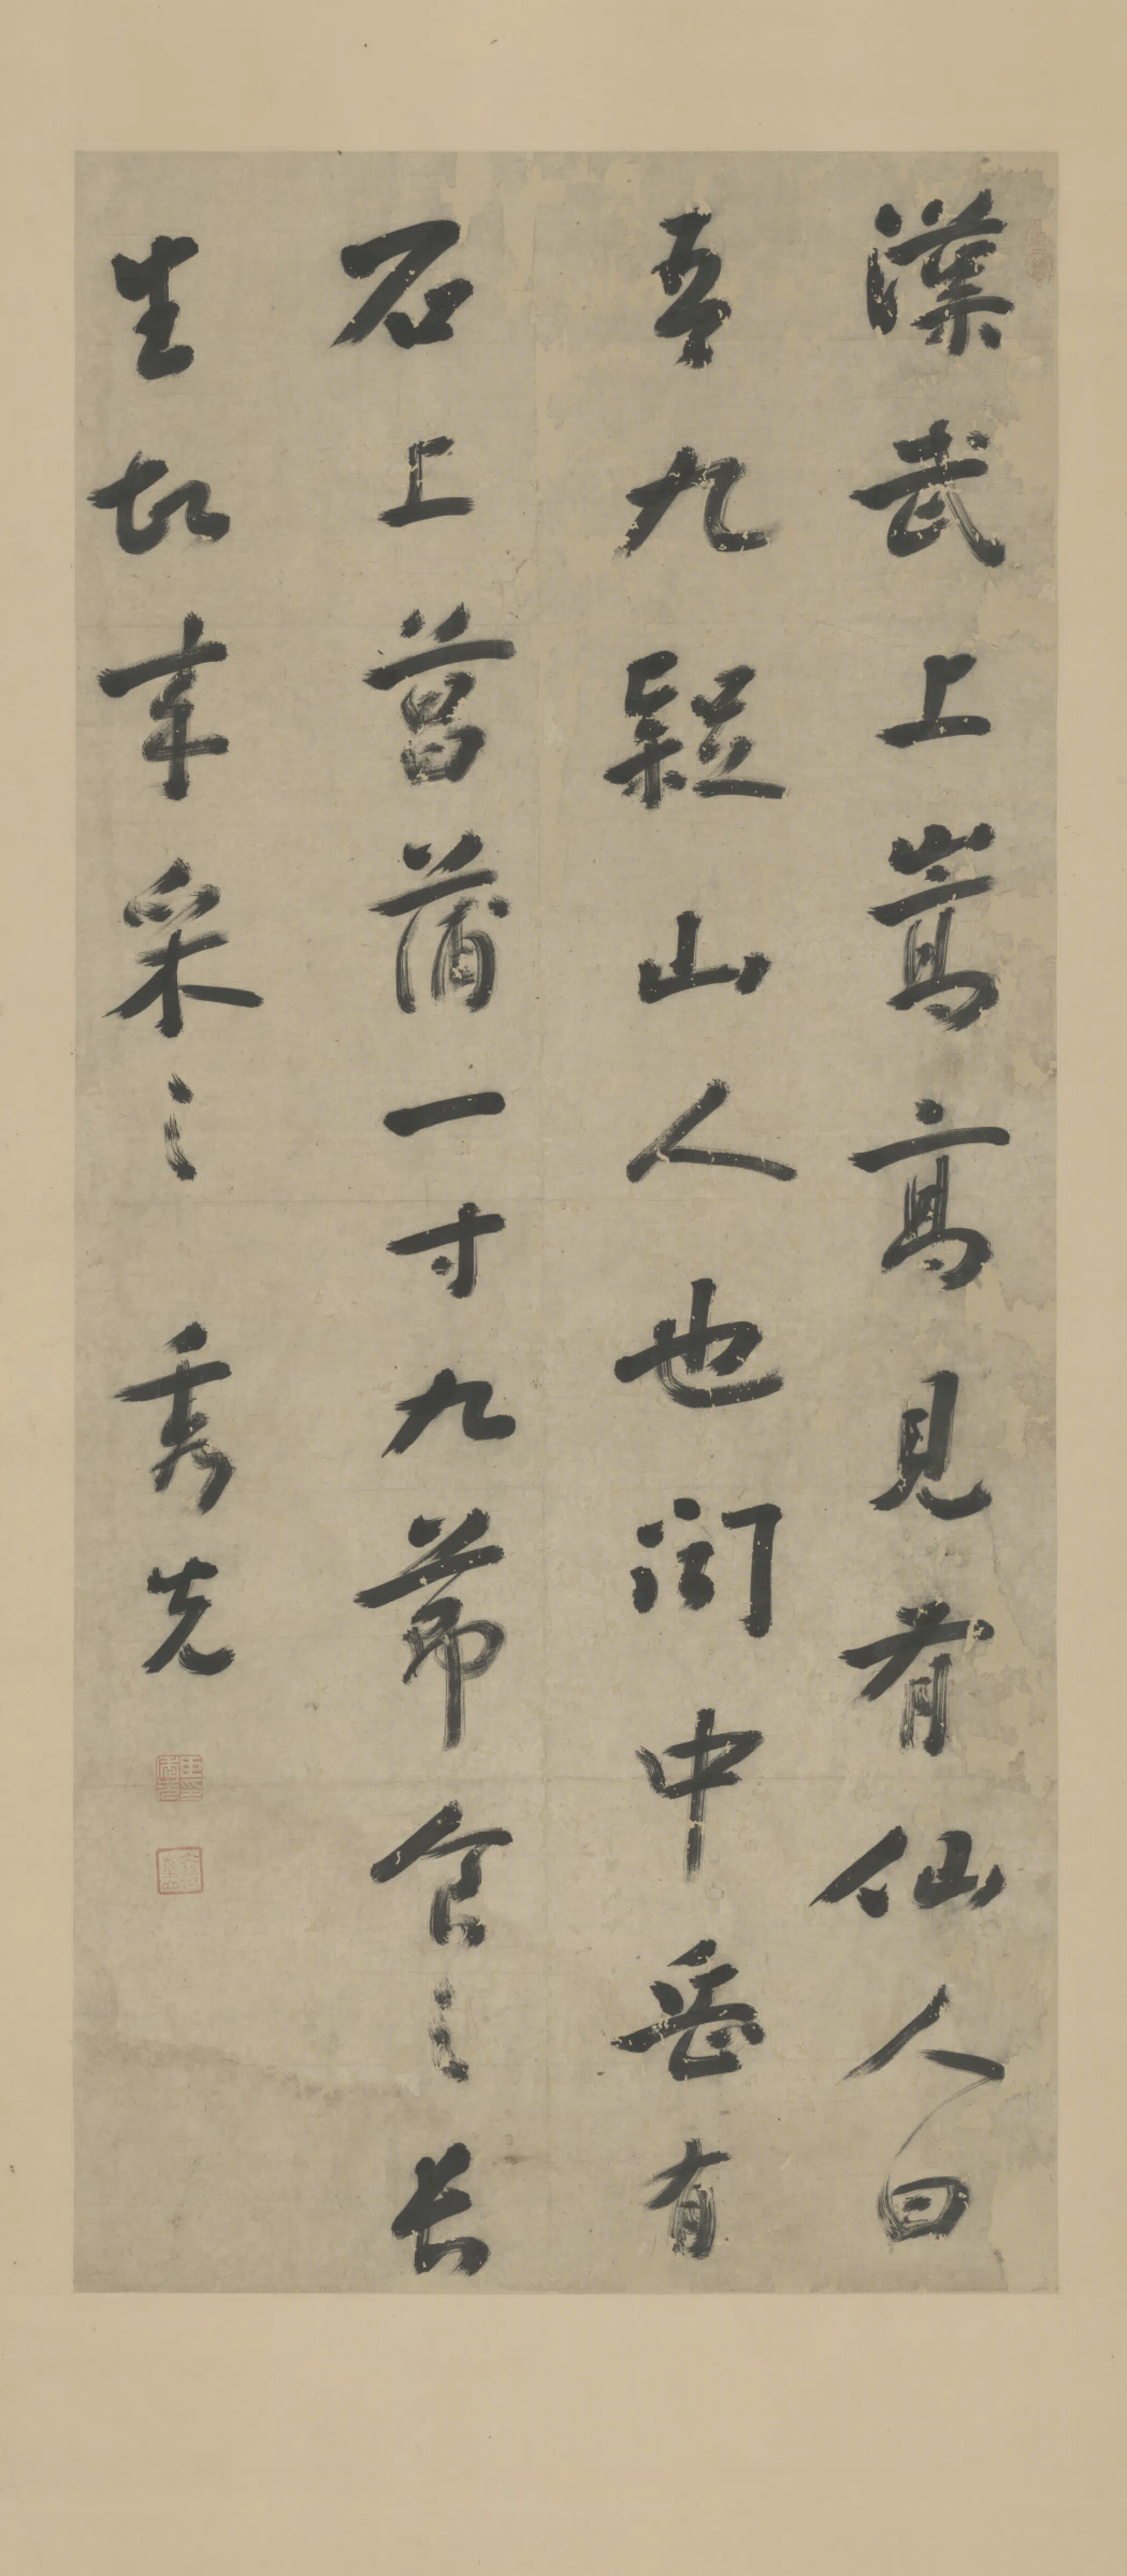 漢武上嵩高見有仙人曰
吾九疑山人也聞中岳有
石上菖蒲一寸九節食之長
生故来采之 秀先